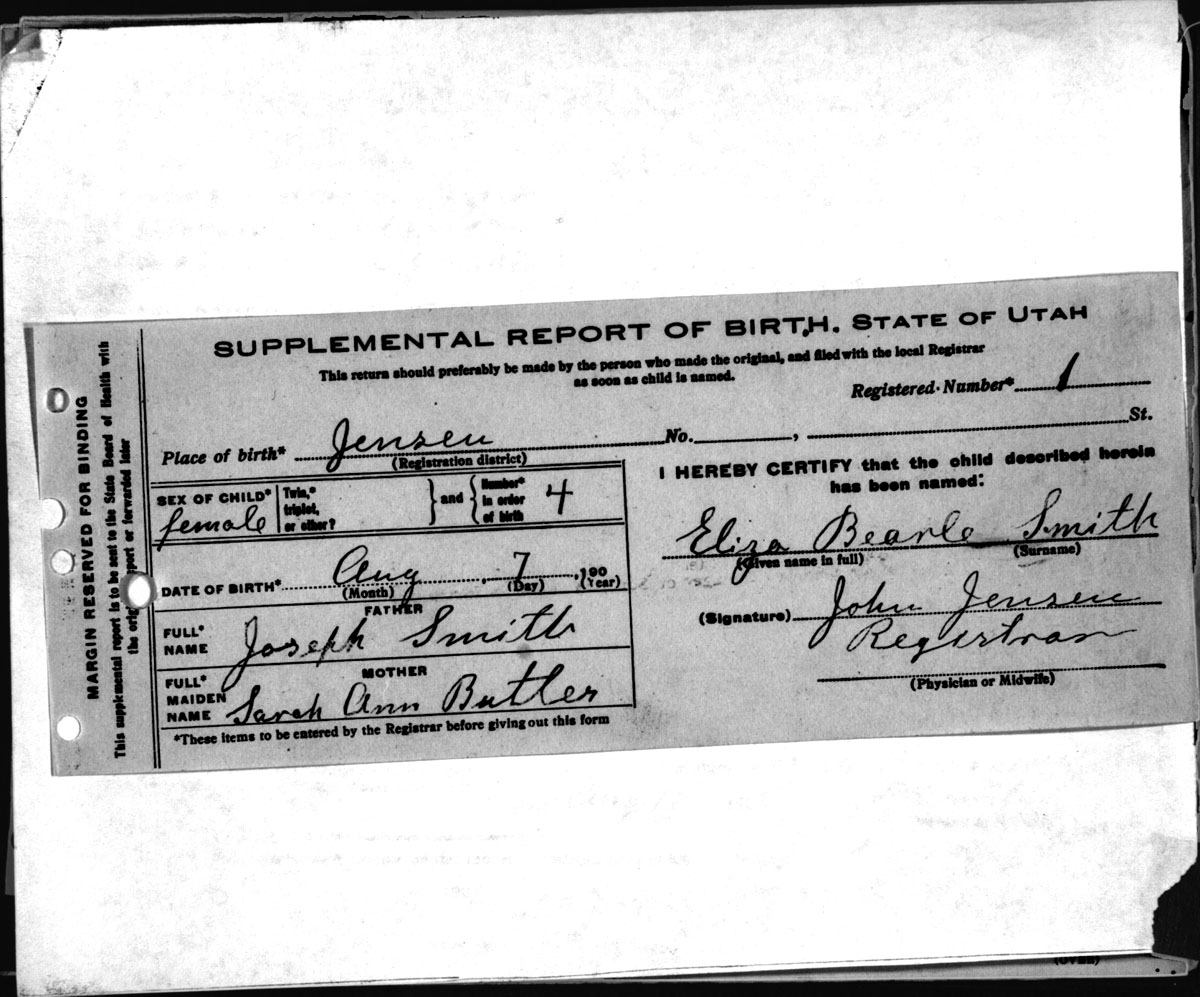 SUPPLEMENTAL REPORT OF BIRTH. STATE OF UTAH
This return should preferably be made by the person who made the original, and filed with the local Registrar
as soon as child is named.
Registered Number* 1
Place of birth* Jensen No. , St.
(Registration district)
SEX OF CHILD* female
Twin,* triplet, or other?
and
Number* in order of birth 4
DATE OF BIRTH* Aug 7, 190
(Month) (Day) (Year)
FATHER
FULL* NAME Joseph Smith
MOTHER
FULL* MAIDEN NAME Sarah Ann Butler
*These items to be entered by the Registrar before giving out this form
I HEREBY CERTIFY that the child described herein
has been named:
Eliza Bearle Smith
(Given name in full) (Surname)
(Signature) John Jensen
Registrar
(Physician or Midwife)
MARGIN RESERVED FOR BINDING
This supplemental report is to be sent to the State Board of Health with
the port or forwarded later
(OVER)